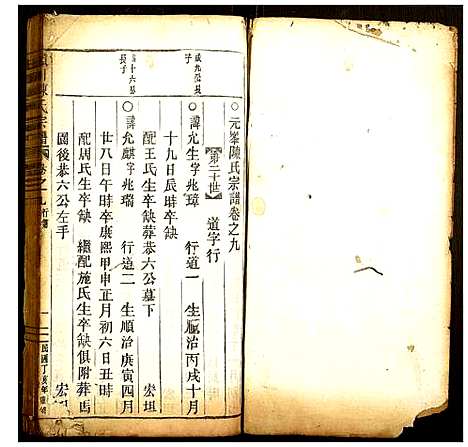 元峯陳氏宗譜卷之九
第二十世 道字行
成九公長子
諱允生字兆璋 行道一 生順治丙戌十月
十九日辰時卒缺
配王氏生卒缺葬恭六公墓下 宏坦
十六公長子
諱允麒字兆瑞 行道二 生順治庚寅四月
廿八日午時卒康熙甲申正月初六日丑時
配居氏生卒缺 繼配施氏生卒缺俱附葬馬
園後恭六公左手 宏
陳氏宗譜 卷之九 行傳 一 民國丁亥年